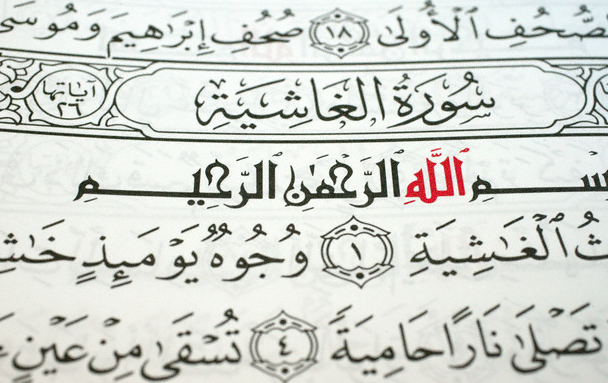 لصُّحُفِ ٱلْأُولَىٰ ١٨ صُحُفِ إِبْرَٰهِيمَ وَمُوسَىٰ
سُورَةُ الغَاشِيَةِ آياتها ٢٦
سم اللَّهِ الرَّحْمَٰنِ الرَّحِيمِ
ثُ ٱلْغَٰشِيَةِ ١ وُجُوهٌ يَوْمَئِذٍ خَٰشِ
تَصْلَىٰ نَارًا حَامِيَةً ٤ تُسْقَىٰ مِنْ عَيْنٍ